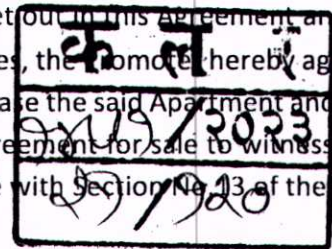 et out in this Agreement an
es, the Promoter hereby ag
क ल
ase the said Apartment and
/२०२३
reement for sale to witness
e with Section No.13 of the